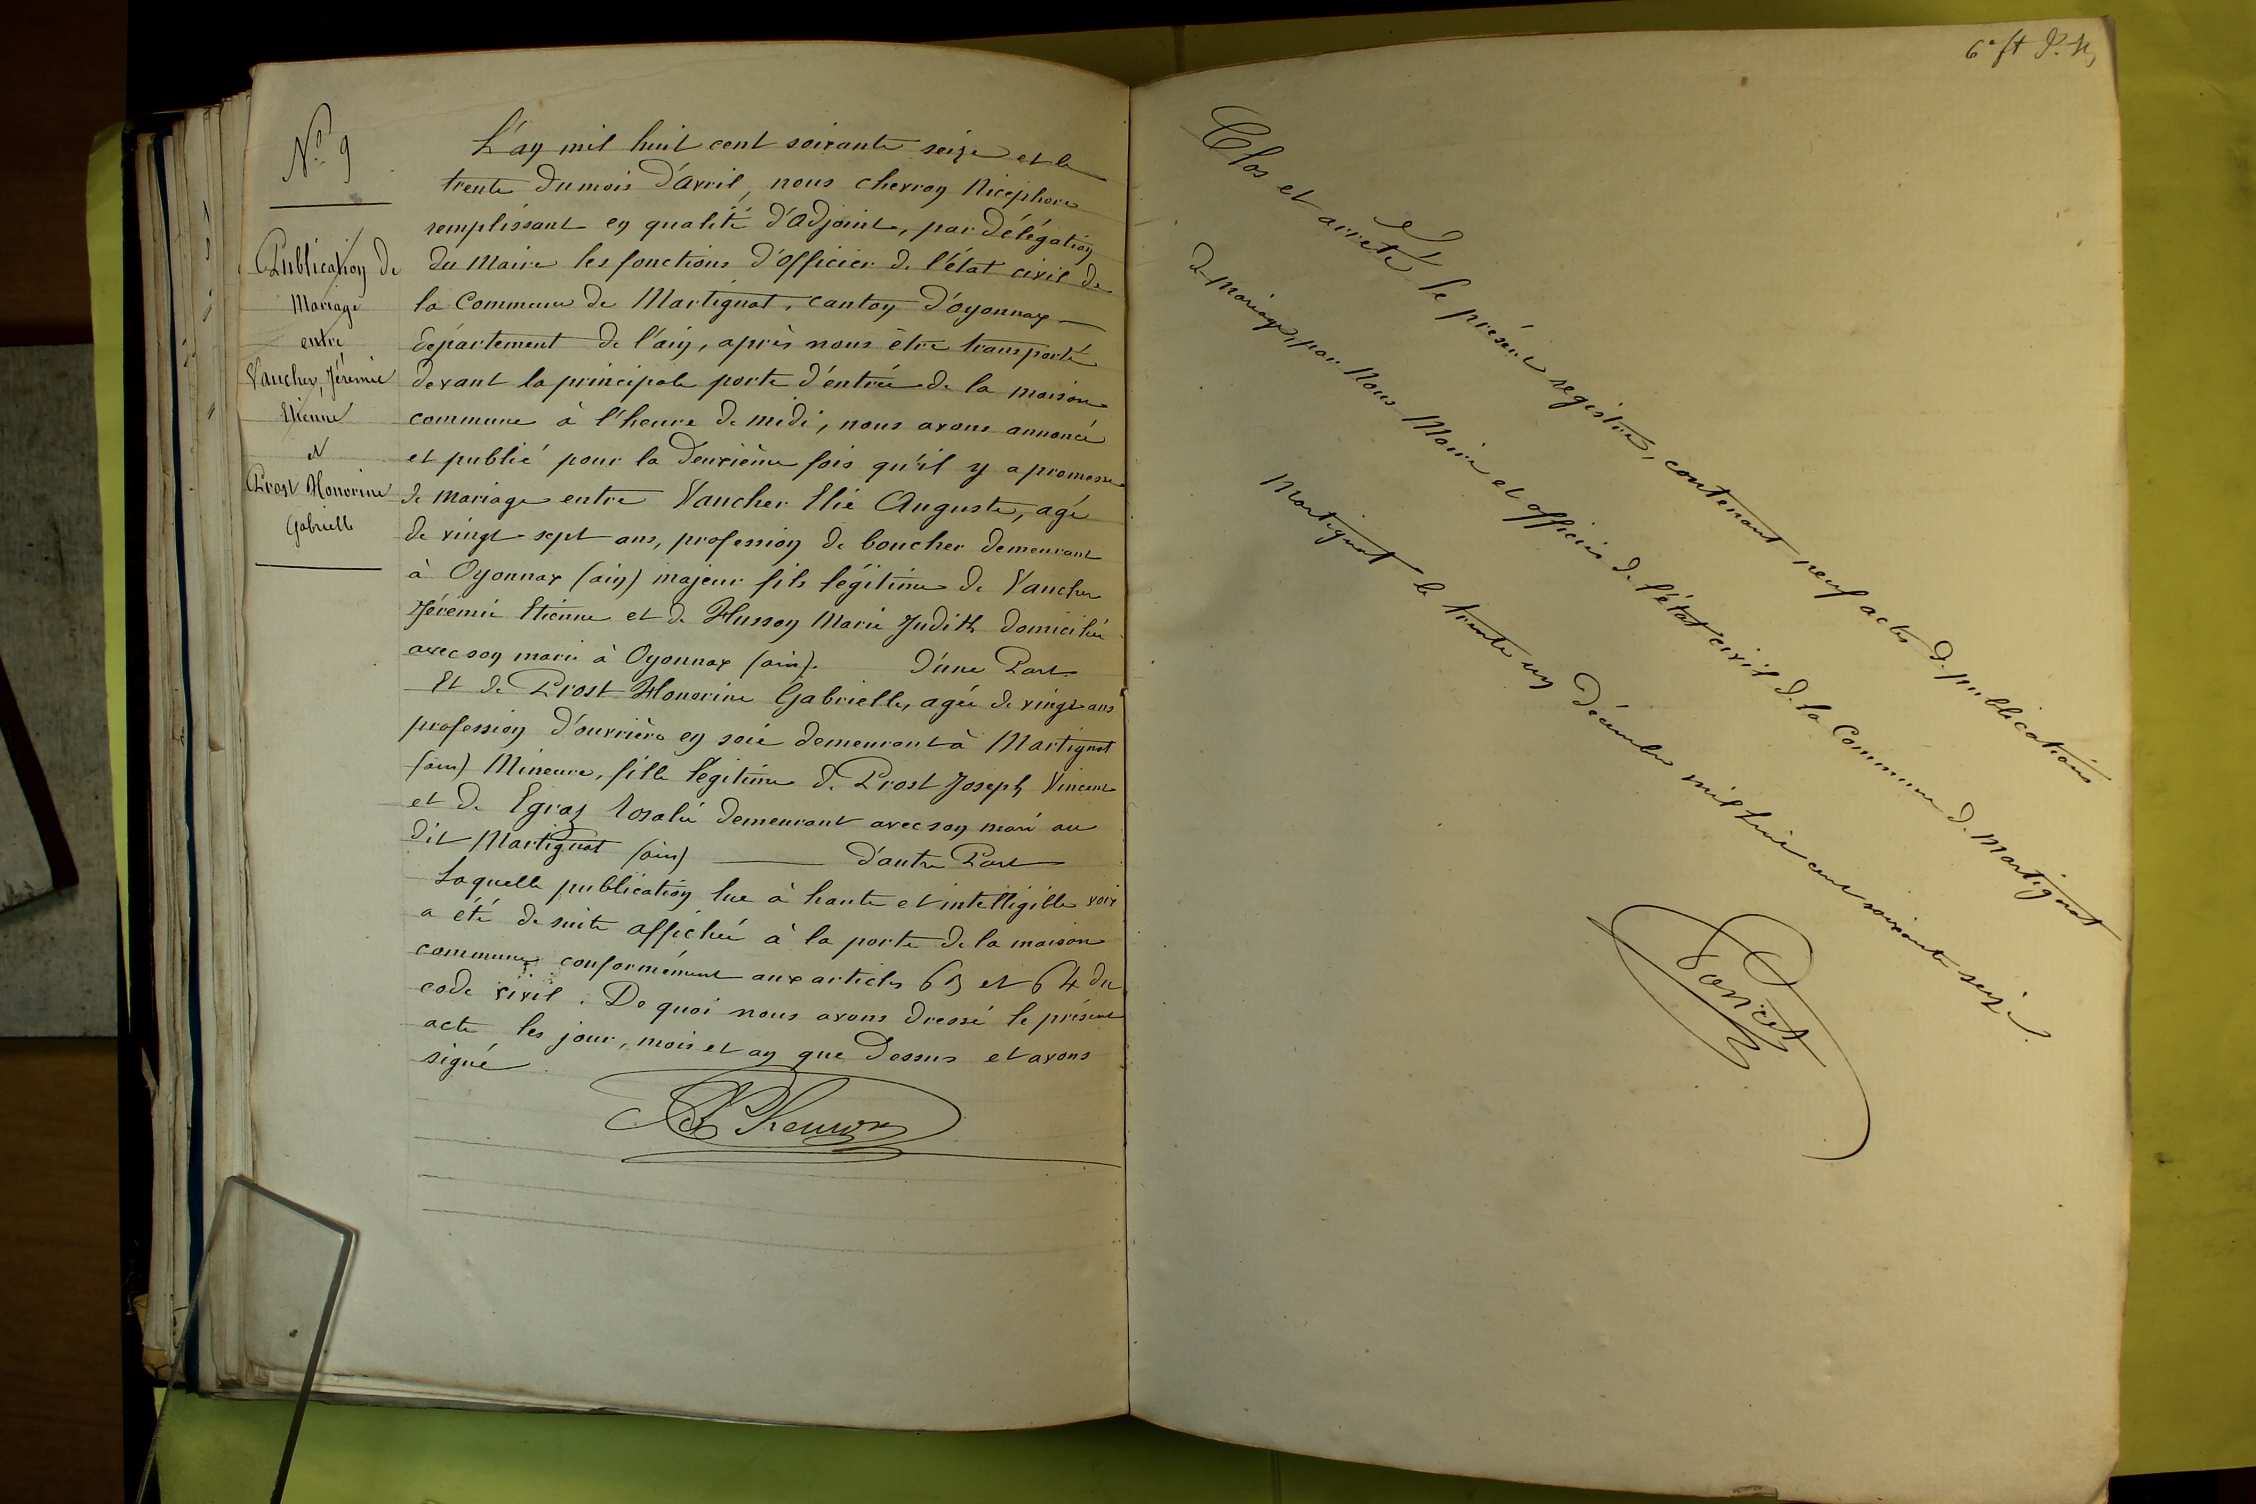 N° 9
Publication de
Mariage
entre
Vaucher, Jérémie
Etienne
et
Prost Honorine
Gabrielle
L'an mil huit cent soixante seize et le
trente du mois d'Avril, nous Chevron Nicéphore
remplissant en qualité d'Adjoint, par délégation
du Maire les fonctions d'Officier de l'état civil de
la Commune de Martignat, canton d'oyonnax
département de l'ain, après nous être transporté
devant la principale porte d'entrée de la maison
commune à l'heure de midi, nous avons annoncé
et publié pour la deuxième fois qu'il y a promesse
de mariage entre Vaucher Elie Auguste, agé
de vingt-sept ans, profession de boucher demeurant
à Oyonnax (ain) majeur fils légitime de Vaucher
Jérémie Etienne et de Husson Marie Judith domiciliée
avec son mari à Oyonnax (ain). d'une Part
Et de Prost Honorine Gabrielle, agée de vingt ans
profession d'ouvrière en soie demeurant à Martignat
(ain) Mineure, fille légitime de Prost Joseph Vincent
et de Egraz Rosalie demeurant avec son mari au
dit Martignat (ain) d'autre Part
Laquelle publication lue à haute et intelligible voix
a été de suite affichée à la porte de la maison
commune conformément aux articles 63 et 64 du
code civil. De quoi nous avons dressé le présent
acte les jour, mois et an que dessus et avons
signé
Chevron
Clos et arrêté le présent registre, contenant neuf actes de publications
de mariage, par Nous Maire et officier de l'état civil de la Commune de Martignat
Martignat le trente un Décembre mil huit cent soixante seize.
Poncet